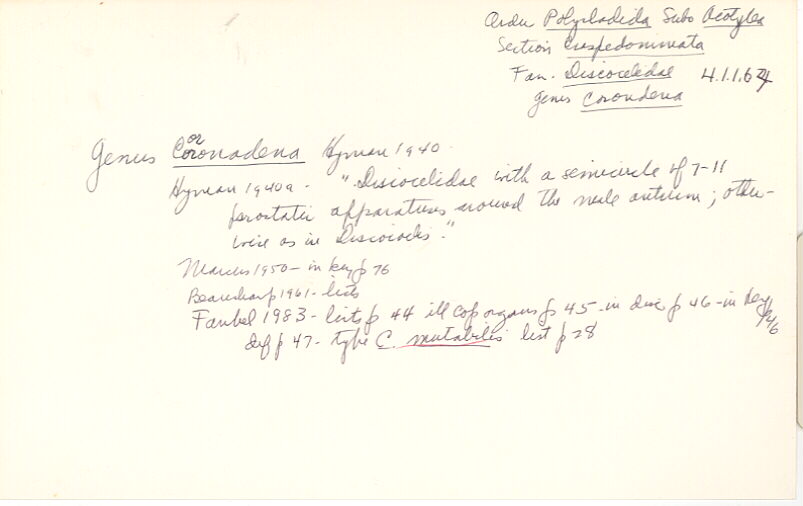 Order Polycladida Subo Acotylea
Section Craspedommata
Fam. Discocelidae 4.1.1.6
Genus Coronadena
or
Genus Coronadena Hyman 1940.
Hyman 1940a - "Discocelidae with a semicircle of 7-11
prostatic apparatuses around the male antrum; other-
wise as in Discocelis."
Marcus 1950 - in key p 76
Beauchamp 1961 - lists
Faubel 1983 - lists p 44 ill cop organs p 45 - in disc p 46 - in key
def p 47 - type C. mutabilis list p 28